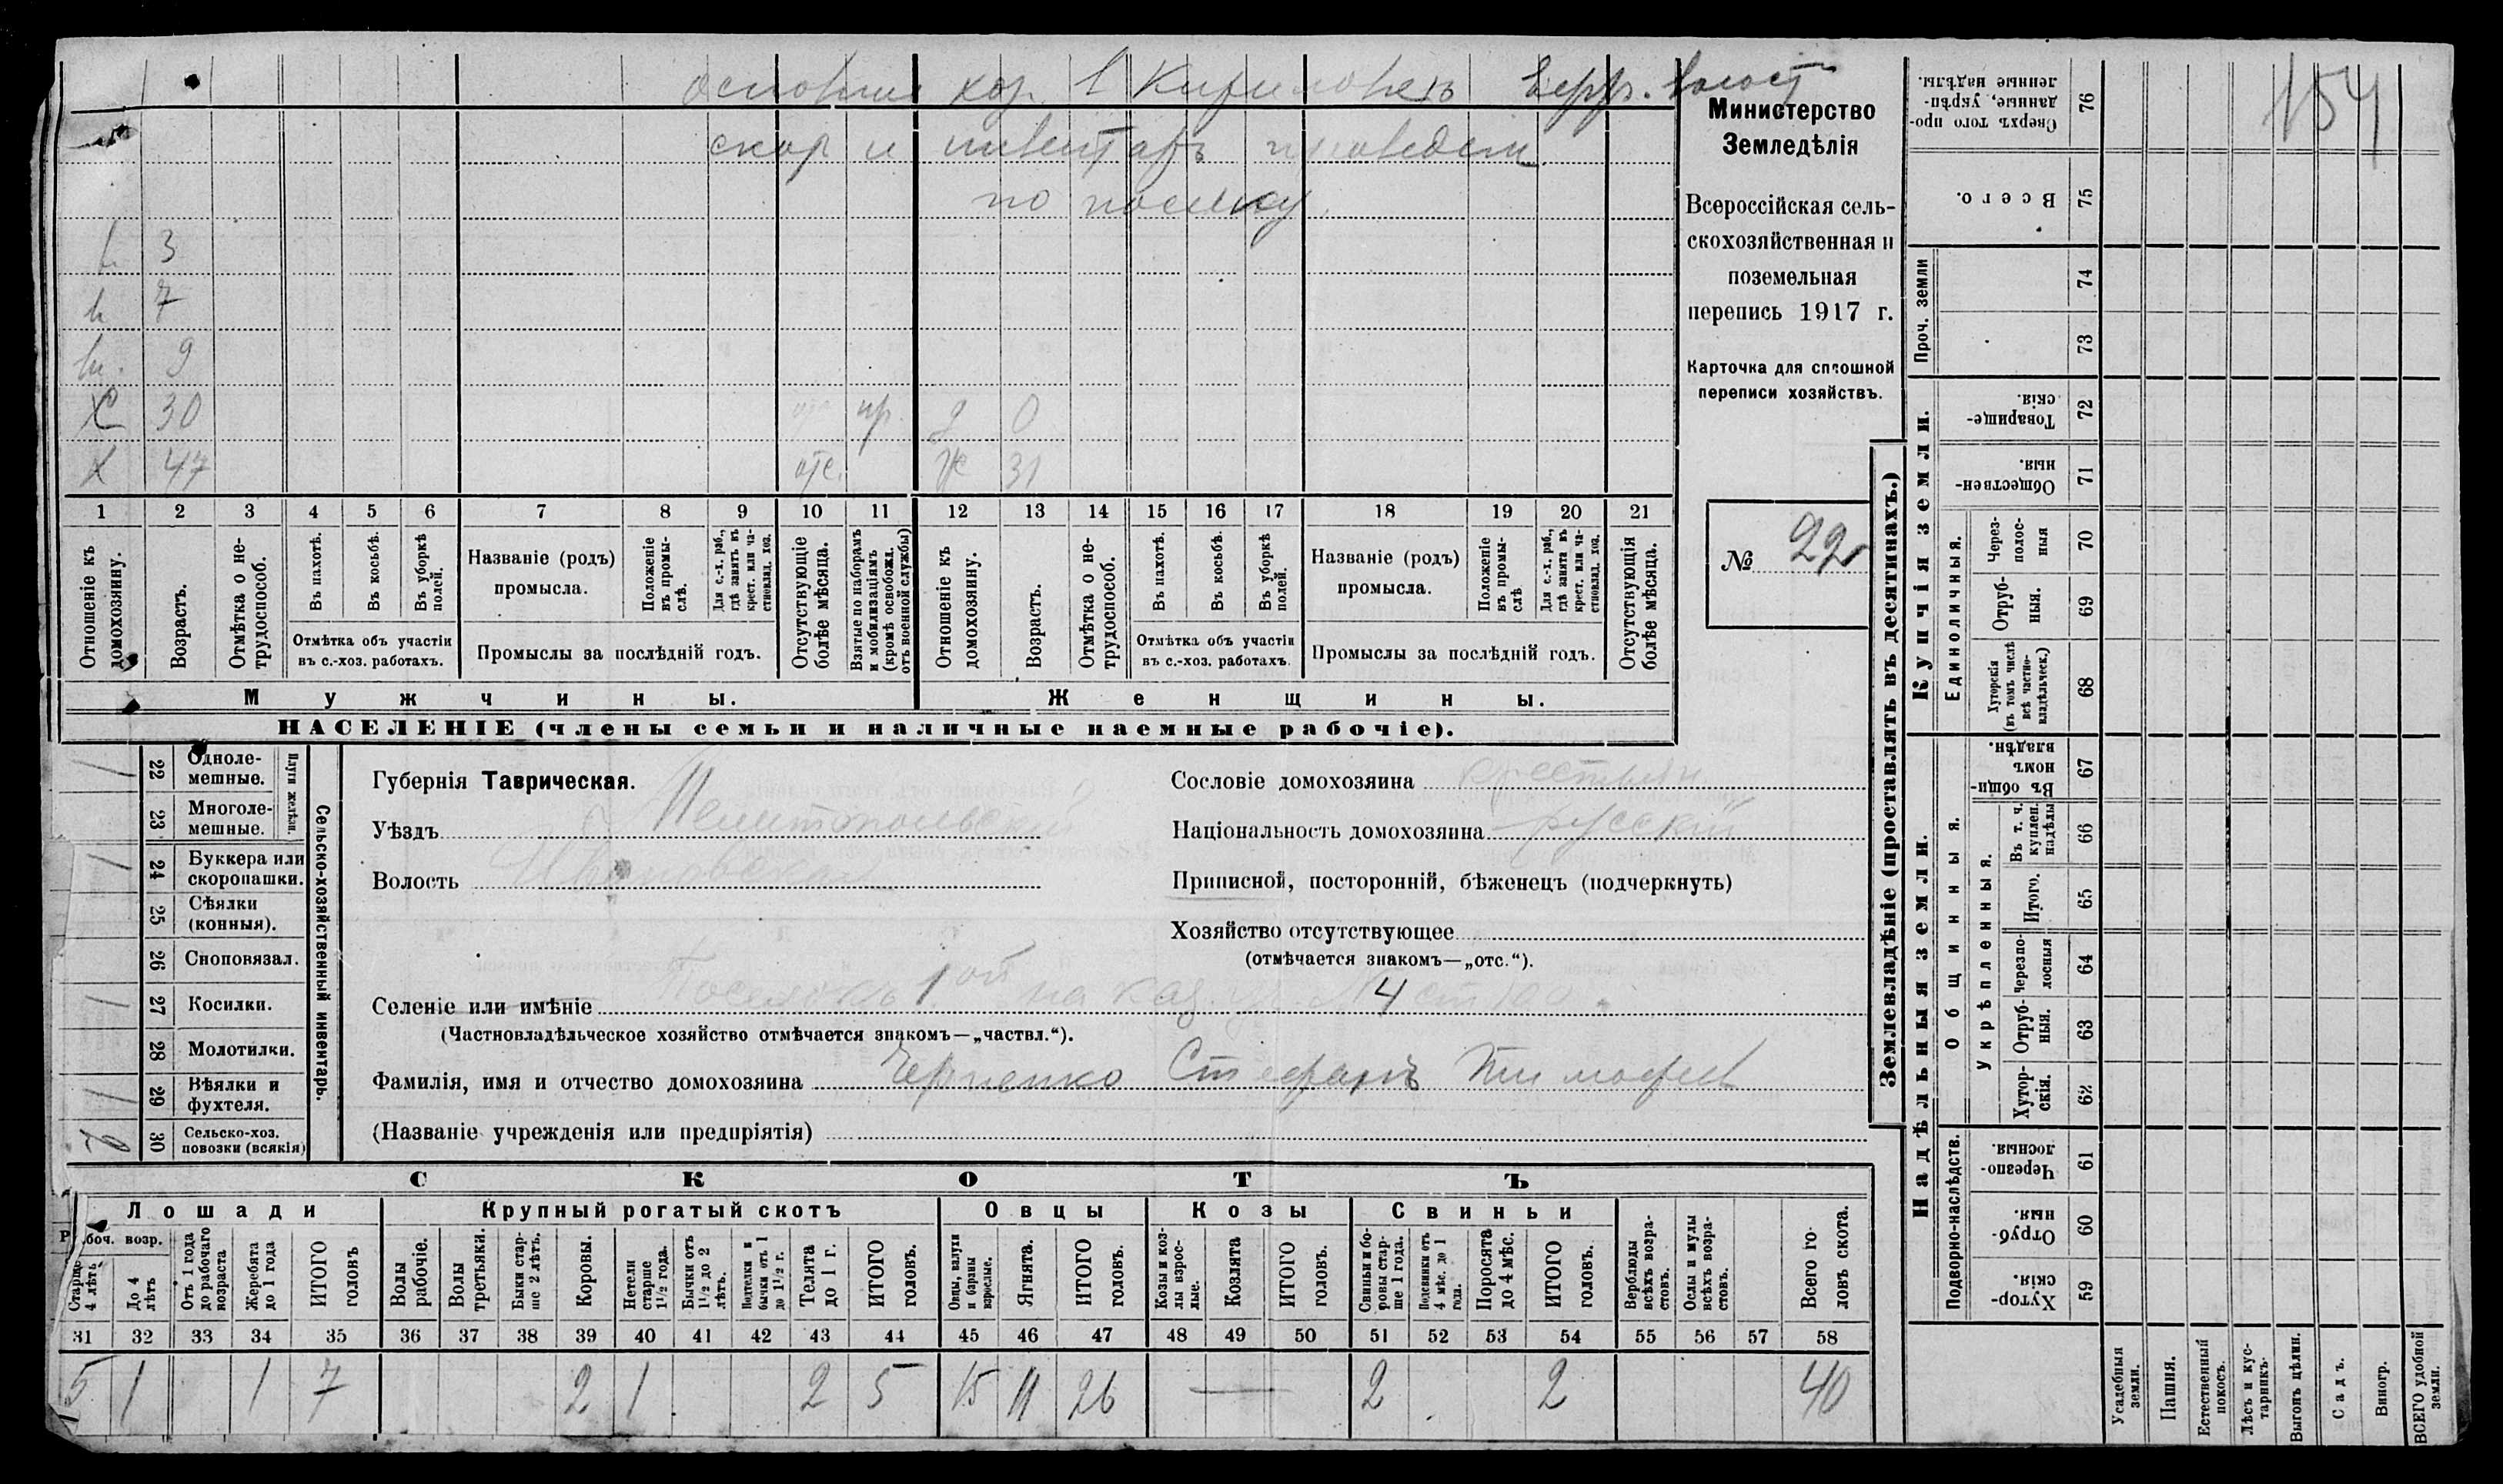 основное хоз. в Кириловск Бердя. волост
скот и инвентарь проведен
по поселку.
154
Министерство
Земледѣлія
Всероссійская сель-
скохозяйственная и
поземельная
перепись 1917 г.
Карточка для сплошной
переписи хозяйствъ.
№ 22
3
7
9
Х 30 пр. д 0
Х 47 отс. ж 31
1 2 3 4 5 6 7 8 9 10 11 12 13 14 15 16 17 18 19 20 21
Отношеніе къ домохозяину.
Возрастъ.
Отмѣтка о не-трудоспособ.
Въ пахотѣ.
Въ косьбѣ.
Въ уборкѣ полей.
Отмѣтка объ участіи
въ с.-хоз. работахъ.
Названіе (родъ)
промысла.
Положеніе въ промы-слѣ.
Для с.-х. раб., гдѣ занятъ въ крест. или ча-стновлад. хоз.
Промыслы за послѣдній годъ.
Отсутствующіе болѣе мѣсяца.
Взятые по наборамъ и мобилизаціямъ (кромѣ освобожд. отъ военной службы)
Отношеніе къ домохозяину.
Возрастъ.
Отмѣтка о не-трудоспособ.
Въ пахотѣ.
Въ косьбѣ.
Въ уборкѣ полей.
Отмѣтка объ участіи
въ с.-хоз. работахъ.
Названіе (родъ)
промысла.
Положеніе въ промы-слѣ
Для с.-х. раб., гдѣ занята въ крест. или ча-стновлад. хоз.
Промыслы за послѣдній годъ.
Отсутствующія болѣе мѣсяца.
Мужчины.
Женщины.
НАСЕЛЕНІЕ (члены семьи и наличные наемные рабочіе).
Сельско-хозяйственный инвентарь.
Плуги желѣзн.
1 22 Одноле-мешные.
23 Многоле-мешные.
1 24 Буккера или скоропашки.
25 Сѣялки (конныя).
26 Сноповязал.
1 27 Косилки.
28 Молотилки.
1 29 Вѣялки и фухтеля.
2 30 Сельско-хоз. повозки (всякія)
Губернія Таврическая.
Уѣздъ Мелитопольскій
Волость Ивановская
Сословіе домохозяина крестьян
Національность домохозяина русскій
Приписной, посторонній, бѣженецъ (подчеркнуть)
Хозяйство отсутствующее
(отмѣчается знакомъ—„отс.“).
Селеніе или имѣніе Поселокъ 1ой на каз. уч. № 4 ст 100
(Частновладѣльческое хозяйство отмѣчается знакомъ—„частвл.“).
Фамилія, имя и отчество домохозяина Черненко Стефанъ Тимофеев
(Названіе учрежденія или предпріятія)
СКОТЪ
Лошади
Крупный рогатый скотъ
Овцы
Козы
Свиньи
Рабоч. возр.
Старше 4 лѣтъ
До 4 лѣтъ
Отъ 1 года до рабочаго возраста
Жеребята до 1 года
ИТОГО головъ
Волы рабочіе.
Волы третьяки.
Быки стар-ше 2 лѣтъ.
Коровы.
Нетели старше 1½ года.
Бычки отъ 1½ до 2 лѣтъ.
Подтелки и бычки отъ 1 до 1½ г.
Телята до 1 г.
ИТОГО головъ.
Овцы, валухи и бараны взрослые.
Ягнята.
ИТОГО головъ.
Козы и коз-лы взрос-лые.
Козлята
ИТОГО головъ.
Свиньи и бо-ровы стар-ше 1 года.
Подсвинки отъ 4 мѣс. до 1 года.
Поросята до 4 мѣс.
ИТОГО головъ.
Верблюды всѣхъ возра-стовъ.
Ослы и мулы всѣхъ возра-стовъ.
Всего го-ловъ скота.
31 32 33 34 35 36 37 38 39 40 41 42 43 44 45 46 47 48 49 50 51 52 53 54 55 56 57 58
5 1 1 7 2 1 2 5 15 11 26 — 2 2 40
Землевладѣніе (проставлять въ десятинахъ.)
76 Сверхъ того про-данные, укрѣп-ленные надѣлы.
75 Всего.
Проч. земли
74
73
Купчія земли.
72 Товарище-скія.
71 Обществен-ныя.
Единоличныя.
70 Через-полос-ныя
69 Отруб-ныя.
68 Хуторскія (въ томъ числѣ всѣ частно-владѣльческ.)
Надѣльныя земли.
Общинныя.
67 Въ общин-номъ владѣн.
Укрѣпленныя.
66 Въ т. ч. куплен. надѣлы
65 Итого.
64 Черезпо-лосныя
63 Отруб-ныя.
62 Хутор-скія.
Подворно-наслѣдств.
61 Черезпо-лосныя.
60 Отруб-ныя.
59 Хутор-скія.
Усадебныя земли.
Пашня.
Естественный покосъ.
Лѣсъ и кус-тарникъ.
Выгонъ цѣлин.
Садъ.
Виногр.
ВСЕГО удобной земли.